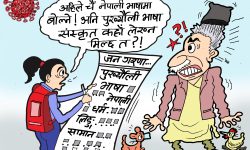 अहिले चैं नेपाली भाषामा
बोल्ने! अनि पुर्ख्यौली भाषा
संस्कृत कहाँ लेख्न
मिल्छ त?!
जनगणना...
पुर्ख्यौली
भाषा
नेपाली
धर्म:
हिन्दु:
समान
?!